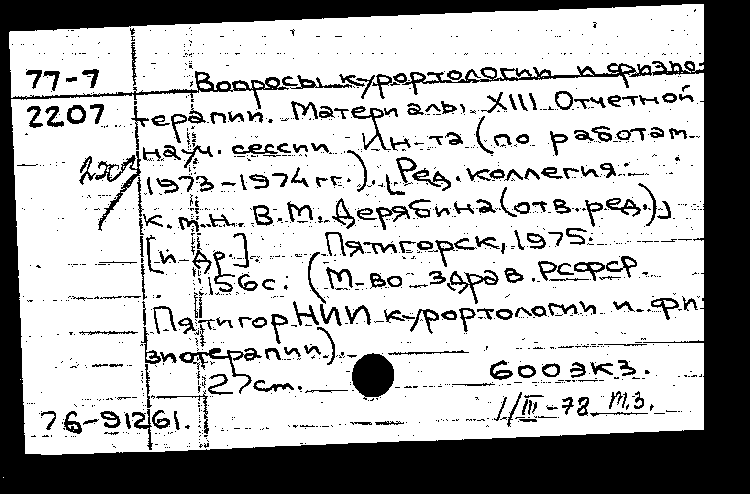 77-7 Вопросы курортологии и физио-
2207 терапии. Материалы XIII Отчетной
науч. сессии Ин-та (по работам
1973-1974 гг.). [Ред. коллегия:
к.м.н. В.М. Дерябина (отв. ред.)]
[и др.]. Пятигорск, 1975.
156с. (М-во здрав. РСФСР.
Пятигор НИИ курортологии и фи-
зиотерапии).
27см. 600 экз.
76-91261. 1/III-78 Т.З.